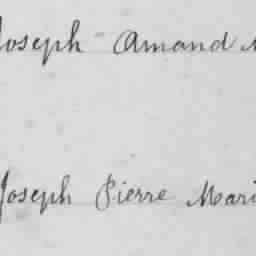 Joseph Amand M
Joseph Pierre Mari